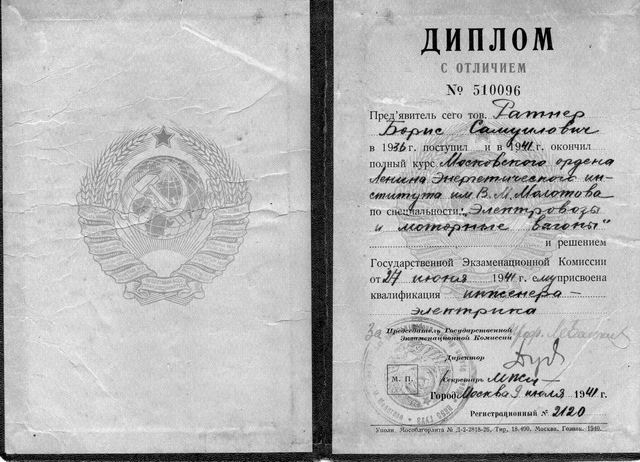 ДИПЛОМ
С ОТЛИЧИЕМ
№ 510096
Пред'явитель сего тов. Ратнер
Борис Самуилович
в 1936г. поступил и в 1941г. окончил
полный курс Московского ордена
Ленина Энергетического ин-
ститута им В. М. Молотова
по специальности: „Электровозы
и моторные вагоны"
и решением
Государственной Экзаменационной Комиссии
от 27 июня 1941 г. ему присвоена
квалификация инженера-
электрика
За Председатель Государственной
Экзаменационной Комиссии
Директор
М. П.
Секретарь
Город Москва 9 июля 1941 г.
Регистрационный № 2120
Уполн. Мособлгорлита № Д-2-2818-26, Тир. 18.400, Москва. Гознак. 1940.